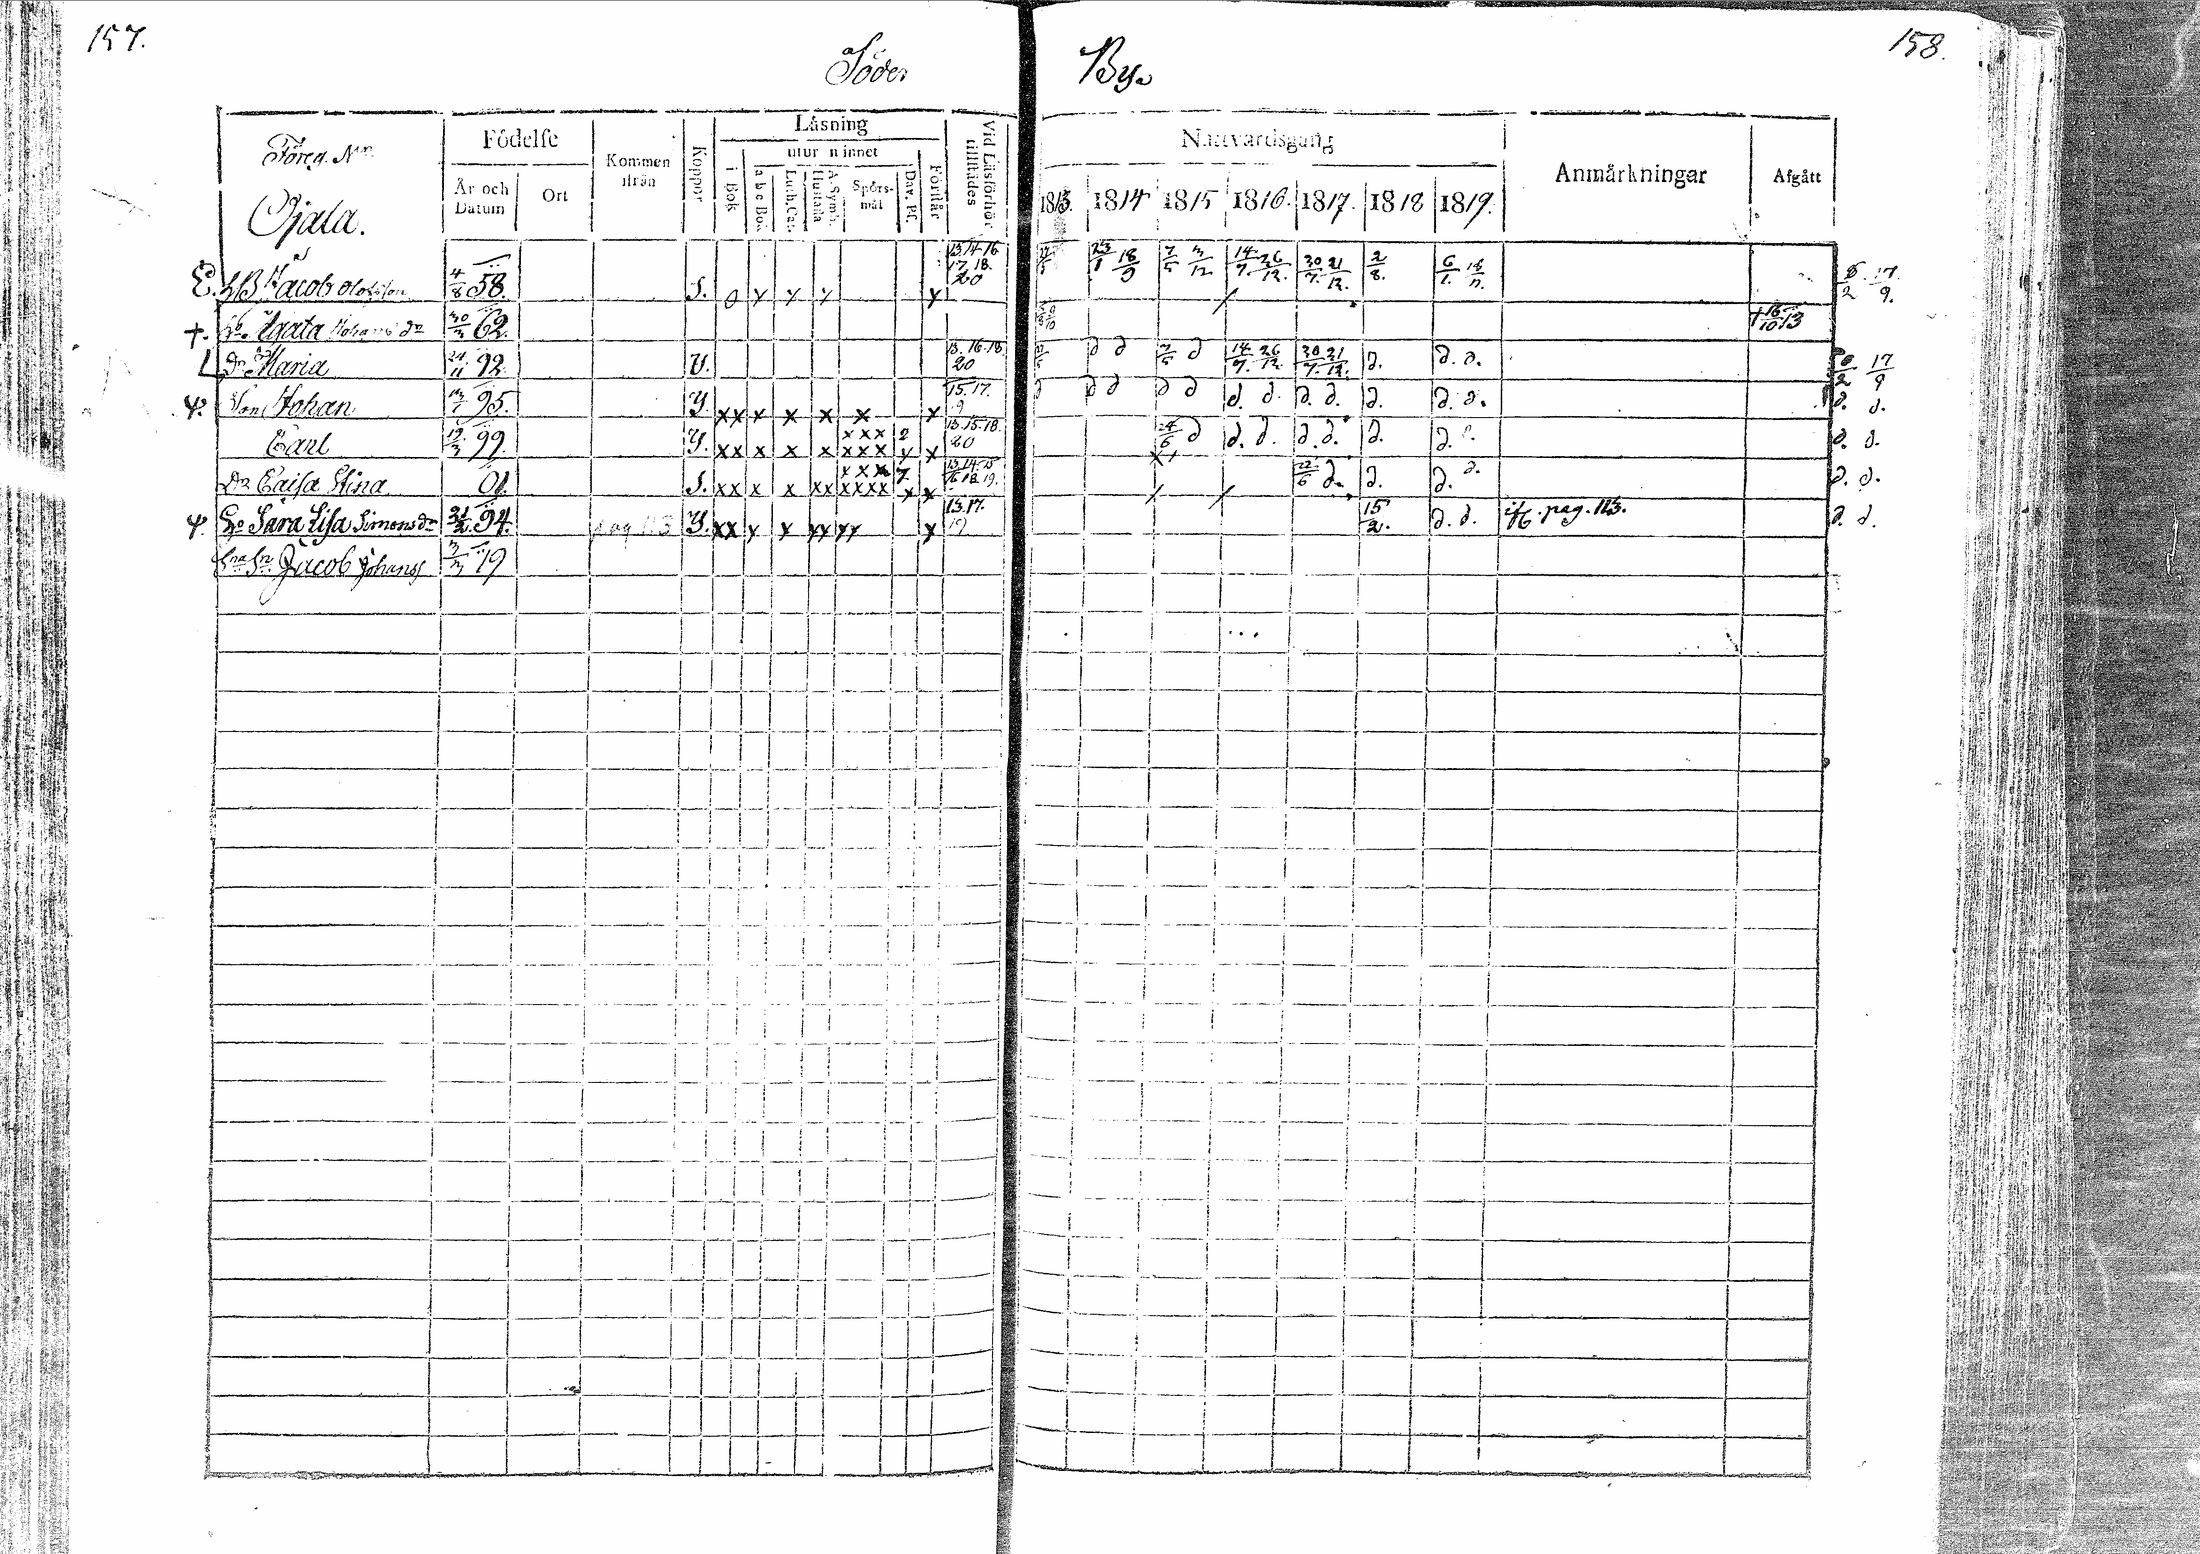 157.
Söder By.
158.
Föreg. Nrn
Ojala.
Födelse
År och Datum
Ort
Kommen ifrån
Koppor
Läsning
utur minnet
i Bok
a b c Bok
Luth. Cat.
A. Symb. Hustafla
Spörsmål
Dav. Ps.
Förstår
Vid Läsförhör tillstädes
Nattvardsgång
1813. 1814 1815 1816. 1817. 1818 1819.
Anmärkningar
Afgått
LB Jacob Olofsson 4/8 58. S. o y y y y 13.14.16 17.18. 20 23/1 18/9 7/5 3/12 14/7. 26/12. 20/7. 21/12. 2/8. 6/1. 17/9.
+. Ho. Agata Johans dr 30/3 62. + 16/10 13
L Dr Maria 21/11 92. V. 13.16.18 20 d d 7/5 d 14/7. 26/12. 20/7. 21/12. d. d. d. 17/9
Son Johan 95. Y xx x x x x x 15.17. d d d d d d. d. d. d. d. d. d. d. d.
Carl 19/3 99. Y. xx x x x xxx xxx 2 y x 13.15.18. 20 24/6 d d. d. d. d. d. d. d. d.
Dr Caisa Stina 01. S. xx x x xx xxx xxxx 7 x x 13.14.15 16.18.19. 22/6 d. d. d. d. d. d.
Ho Sara Lisa Simons dr 21/2. 94. pag 113 Y. xx y x yy yy x 13.17. 19 15/2. d. d. ifr. pag. 113. d. d.
Sns Sn Jacob Johanss 3/3 19